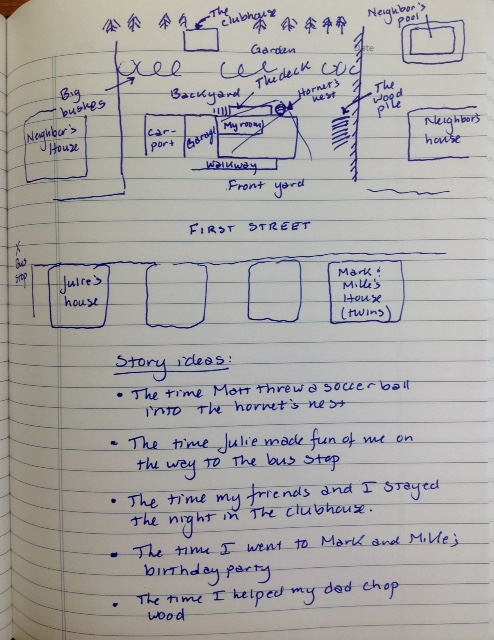 The clubhouse
Neighbor's pool
Garden
Date
Big bushes
Backyard
The deck
Hornet's nest
The wood pile
Neighbor's House
Car-port
Garage
My room
Neighbor's house
Walkway
Front yard
FIRST STREET
X
Bus stop
Julie's house
Mark & Mike's House (twins)
Story ideas:
• The time Matt threw a soccer ball
into the hornet's nest
• The time Julie made fun of me on
the way to the bus stop
• The time my friends and I stayed
the night in the clubhouse.
• The time I went to Mark and Mike's
birthday party
• The time I helped my dad chop
wood